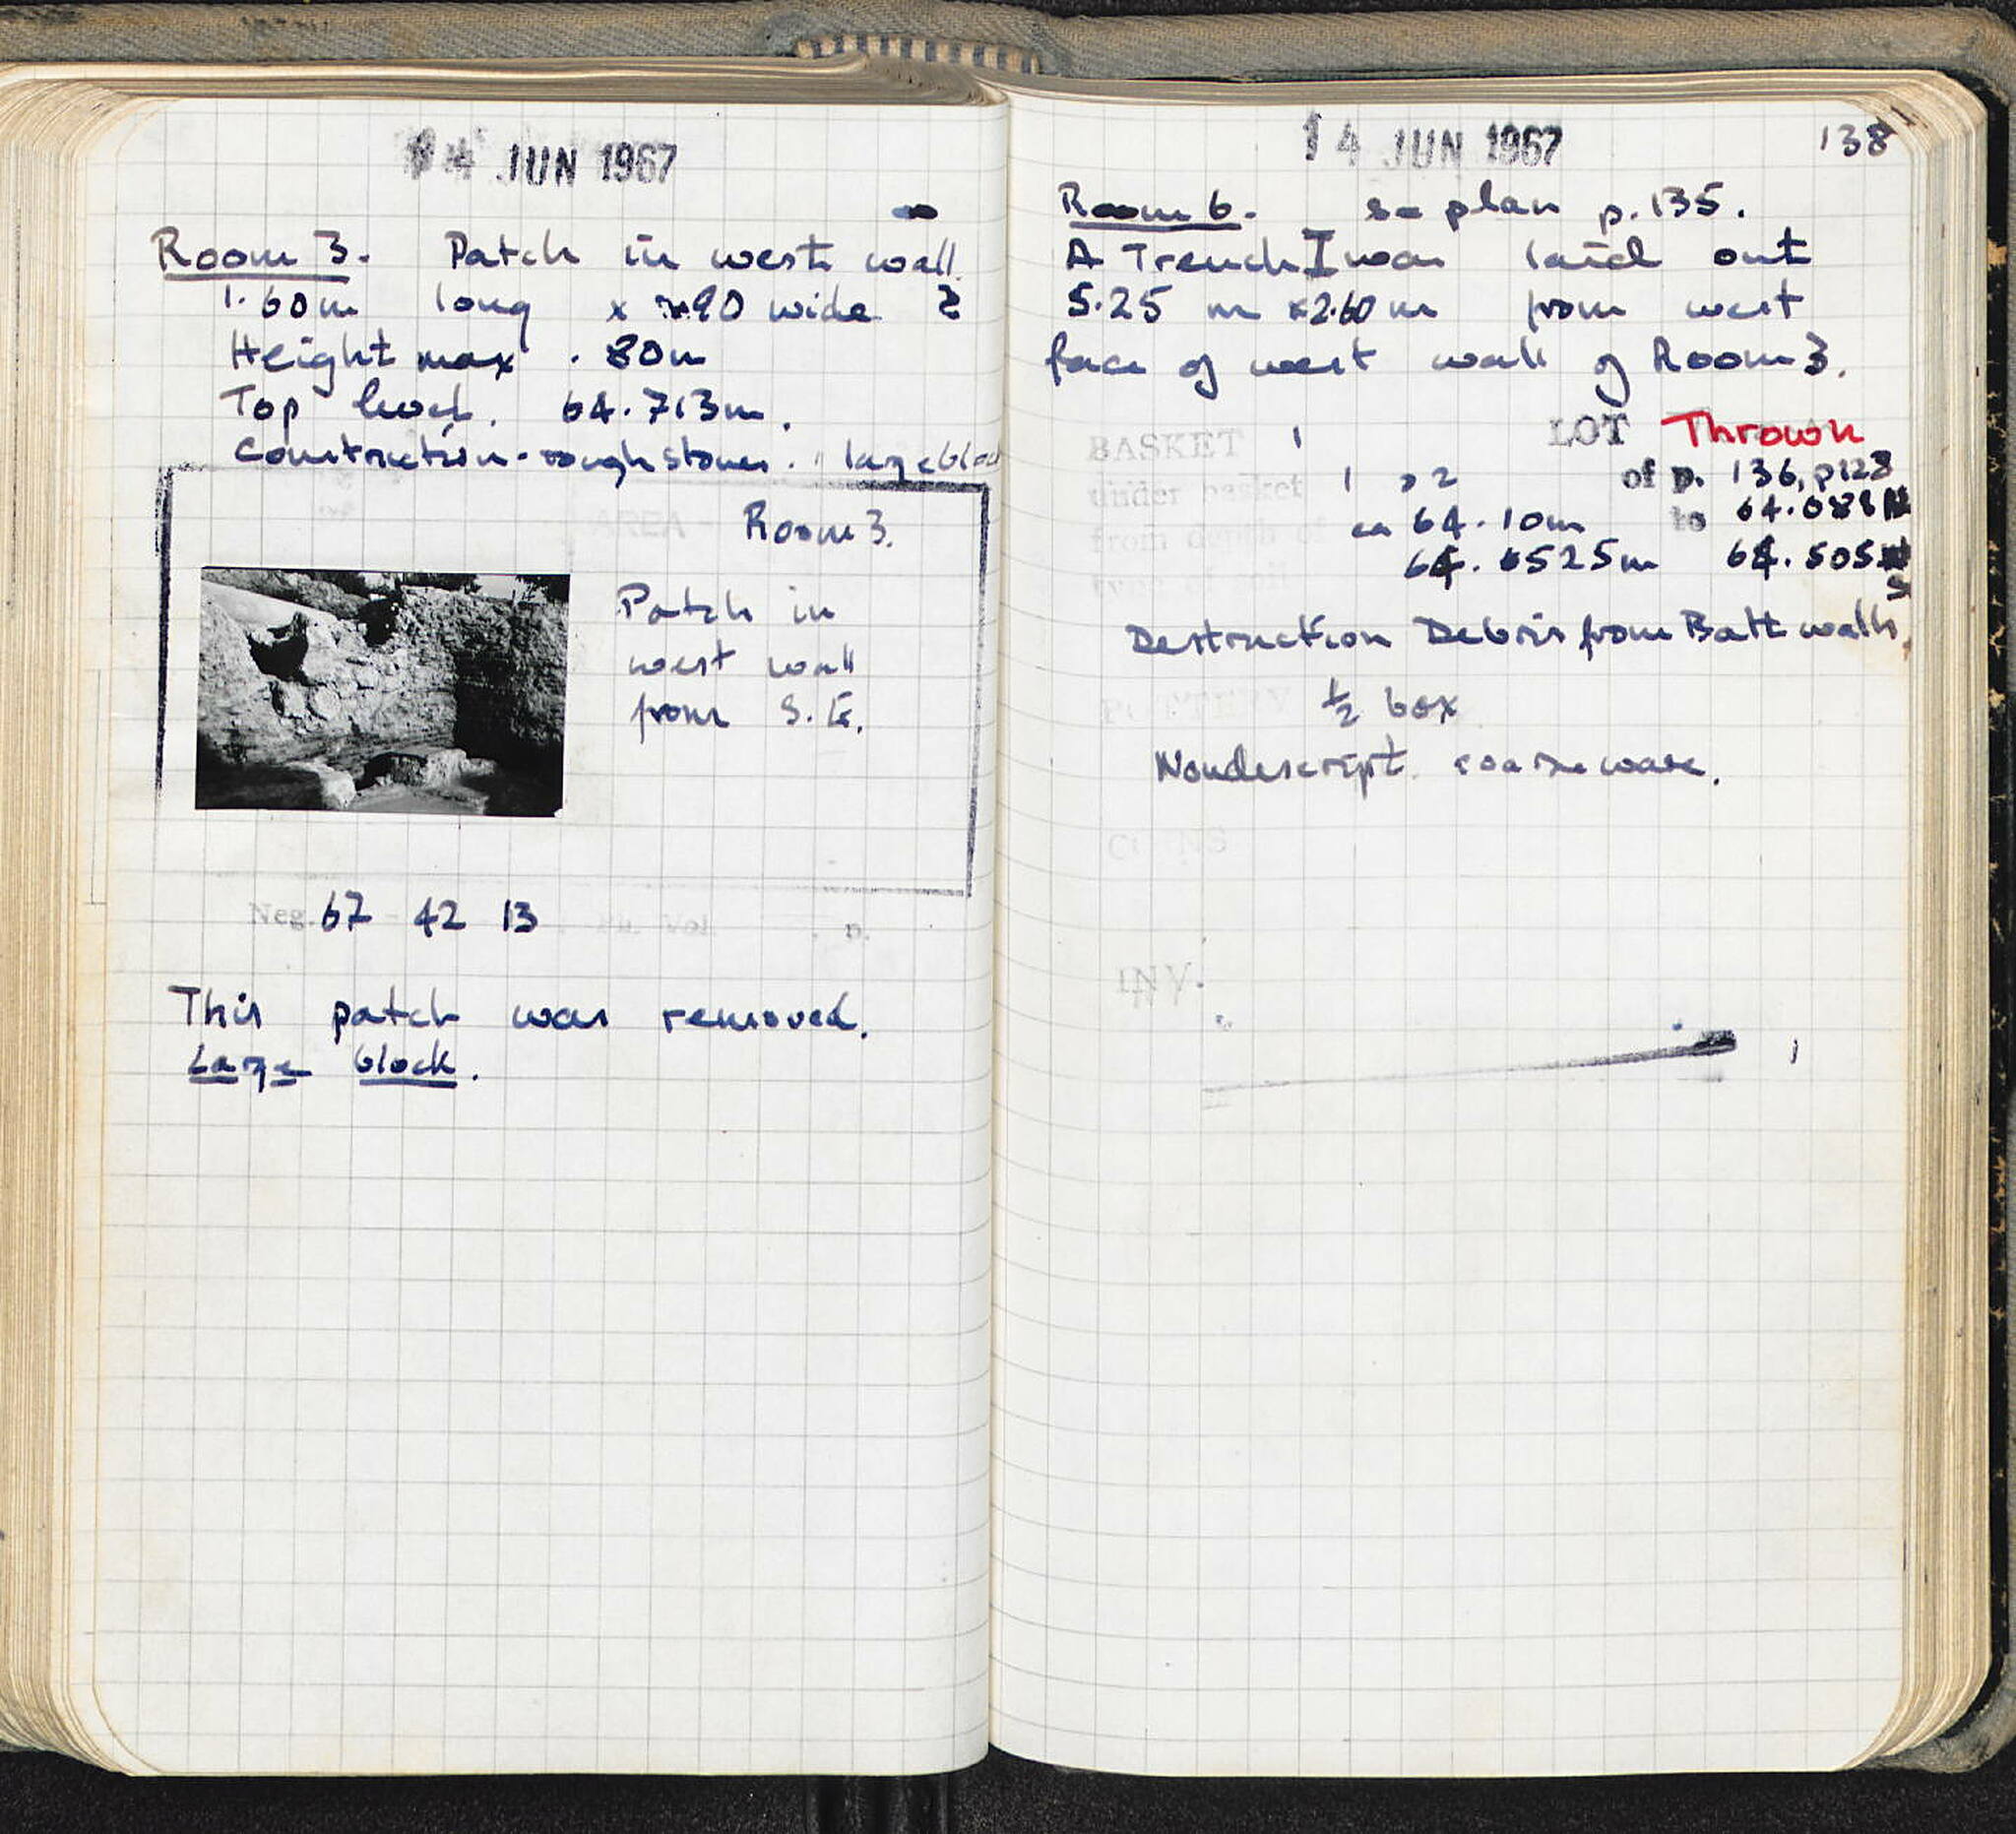 14 JUN 1967
Room 3. Patch in west wall.
1.60m long x .90 wide
Height max .80m
Top level. 64.713m.
Construction - rough stones. 1 large block
AREA
Room 3.
Patch in
west wall
from S.E.
Neg. 67 42 13 Ph. Vol. p.
This patch was removed.
Large block.
14 JUN 1967 138
Room 6. se plan p. 135.
A Trench I was laid out
5.25 m x 2.60 m from west
face of west wall of Room 3.
BASKET 1 LOT Thrown
under basket 1, 2 of p. 136, p128
from depth of ca 64.10m to 64.088 N
64.6525m 64.505 S
type of soil
Destruction Debris from Bath walls,
POTTERY ½ box
Nondescript coarse ware.
COINS
INV.